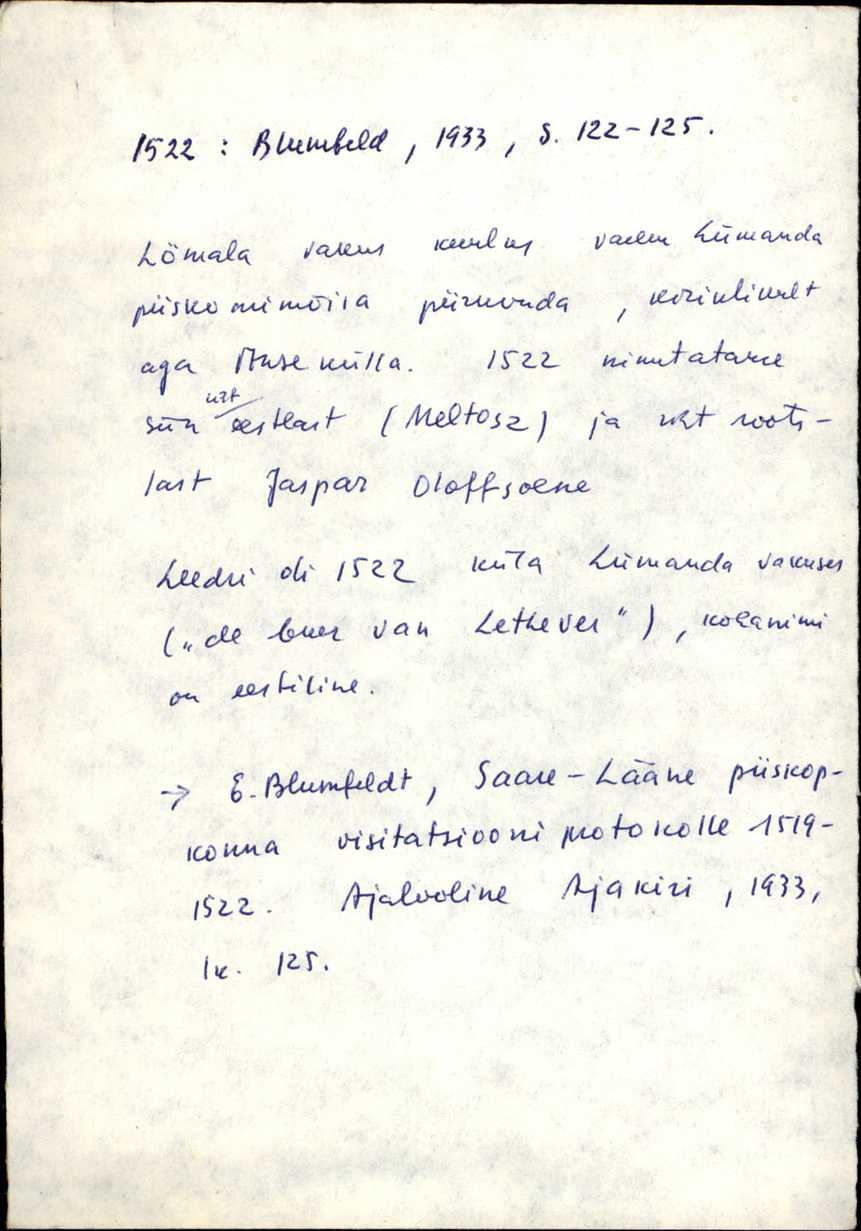 1522 : Blumfeld, 1933, S. 122-125.
Lõmala vakus kuulus vanem Lümanda
piiskopimõisa piirkonda, kiriklikult
aga Anseküla. 1522 nimetatakse
siin üht eestlast (Meltosz) ja üht roots-
last Jaspar Oloffsoene
Leedri oli 1522 küla Lümanda vakuses
("de buer van Letkever"), kohanimi
on eestiline.
→ E. Blumfeldt, Saare-Lääne piiskop-
konna visitatsiooni protokolle 1519-
1522. Ajalooline Ajakiri, 1933,
lk. 125.